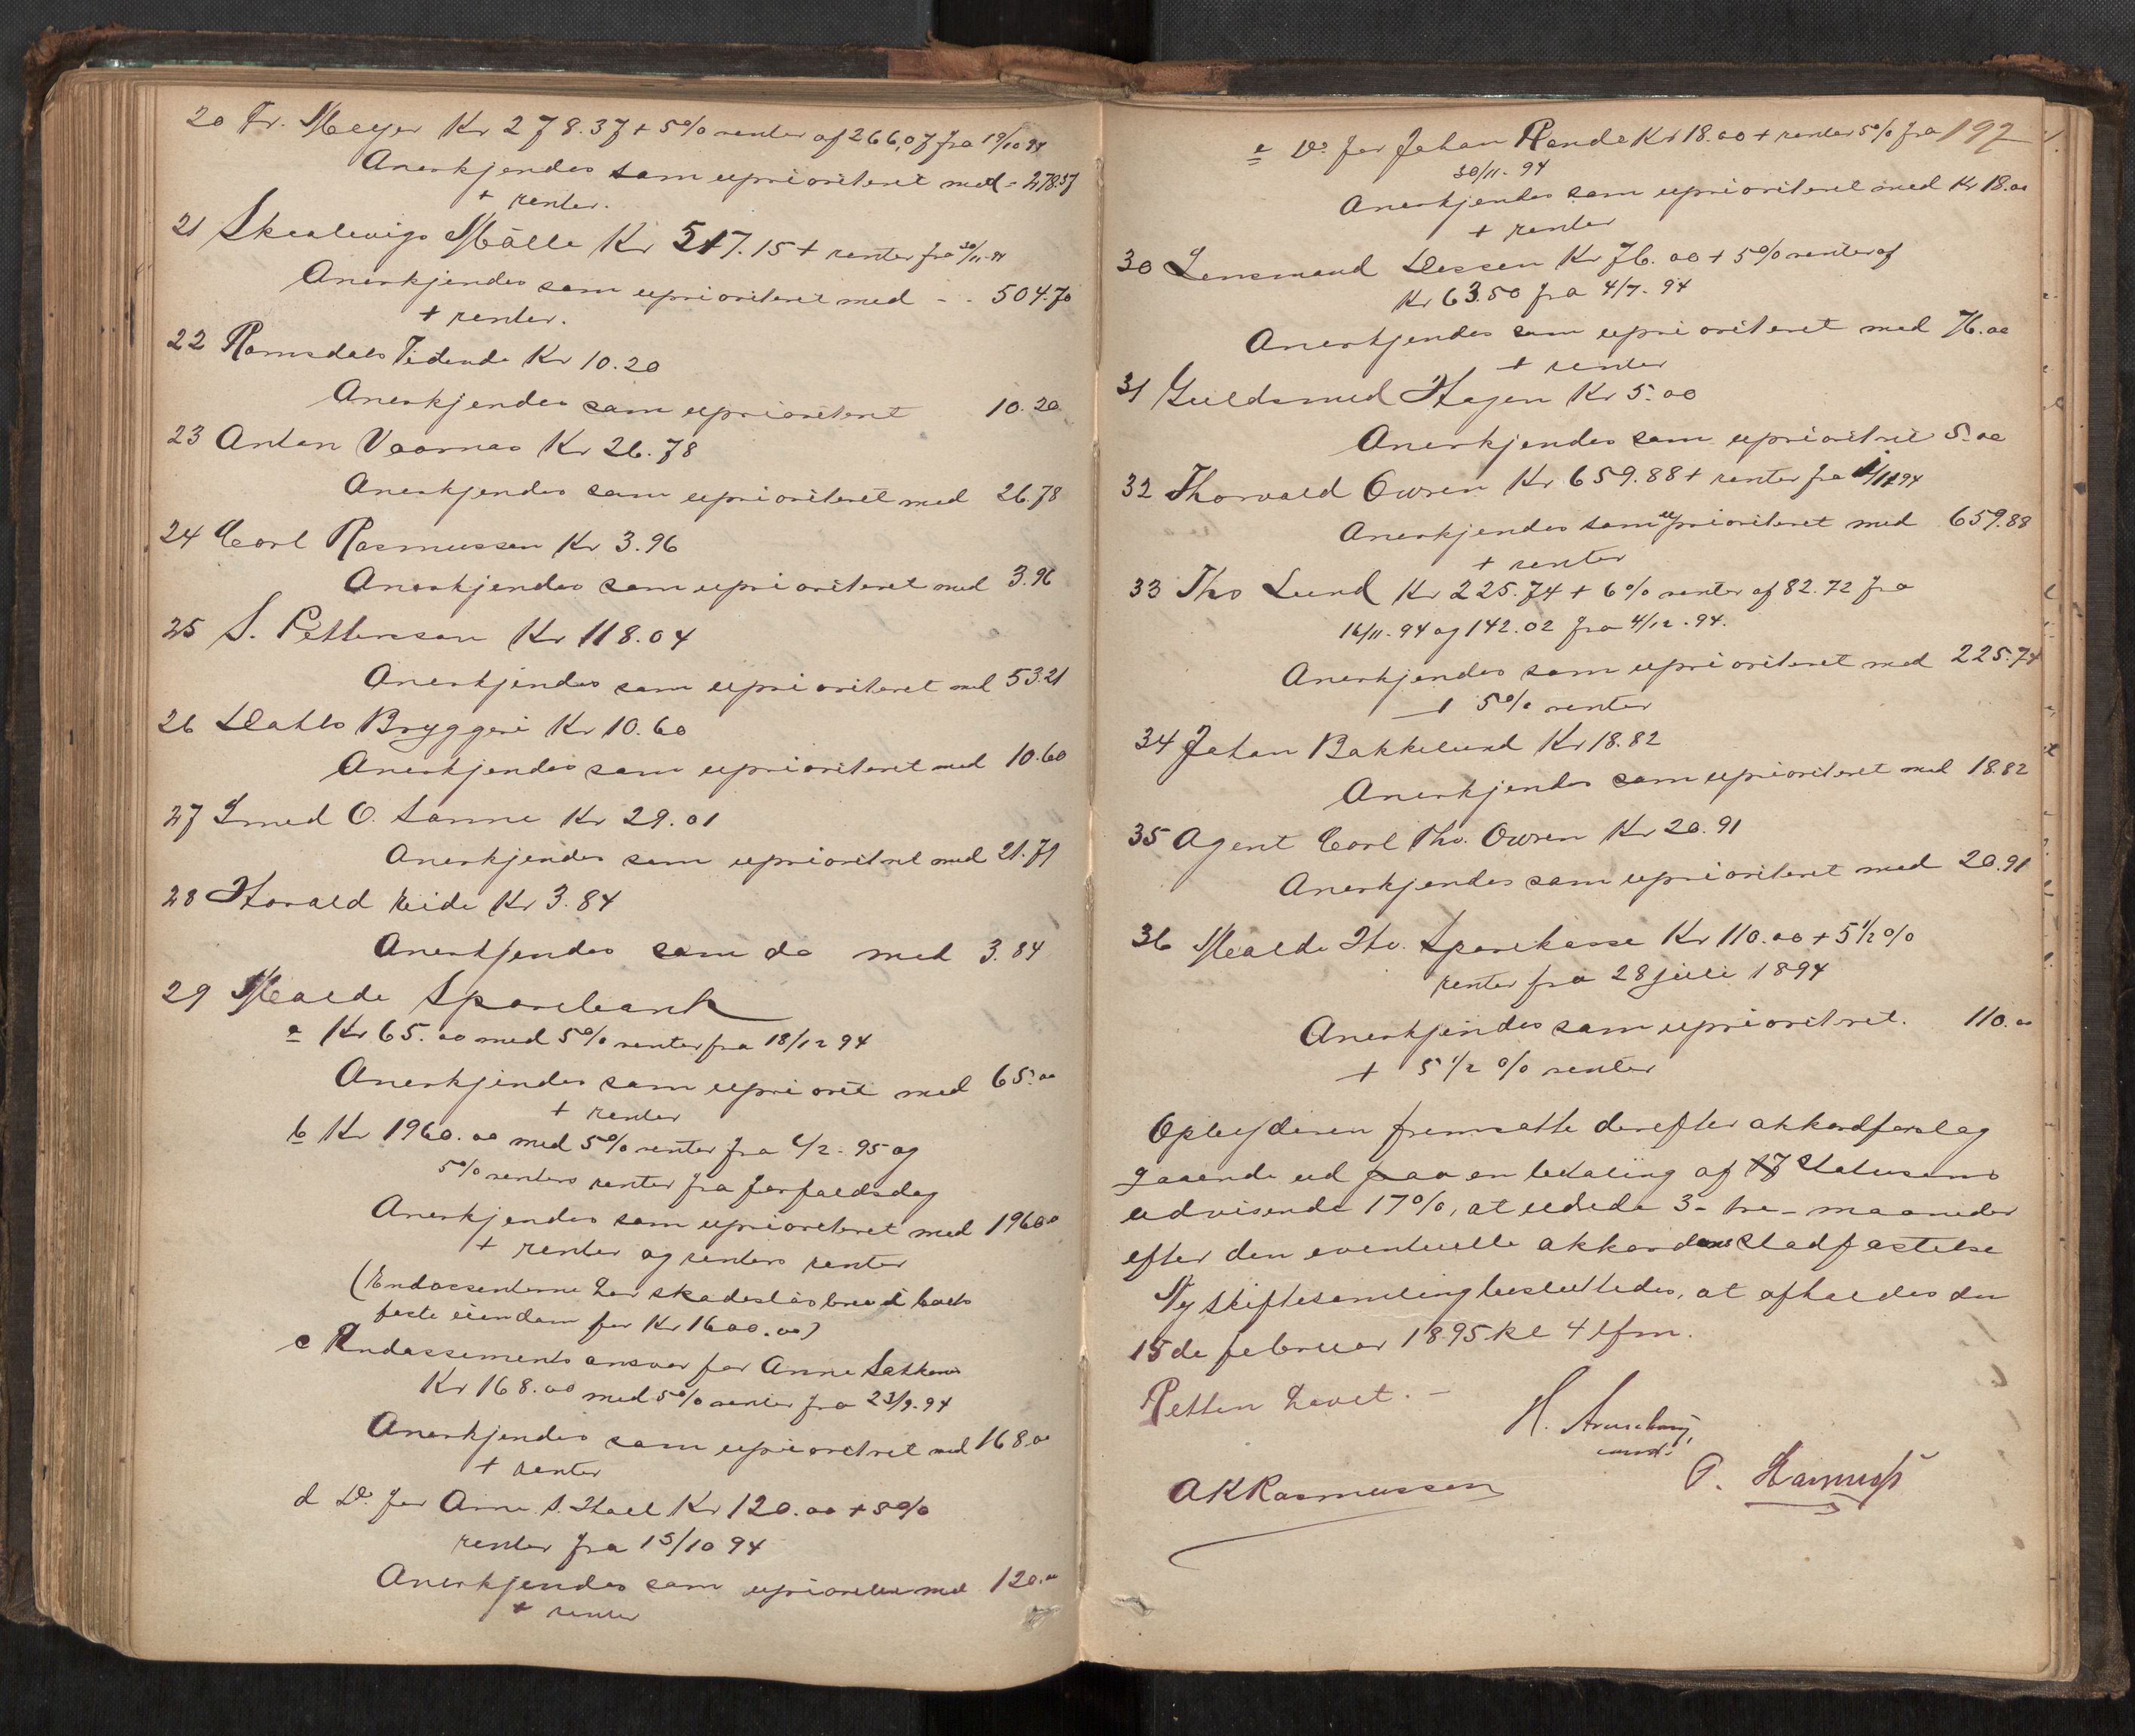 20 Fr. Meyer Kr 278.37 + 5% renter af 266,07 fra 19/10 94
Anerkjendes som uprioriteret med - 278.37
+ renter.
21 Skaalevigs Mölle Kr 517.15 + renter fra 30/11-94
Anerkjendes som uprioriteret med - - 504.70
+ renter.
22 Romsdals Tidende Kr 10.20
Anerkjendes som uprioriteret 10.20
23 Anton Vaarnas Kr 26.78
Anerkjendes som uprioriteret med 26.78
24 Carl Rasmussen Kr 3.96
Anerkjendes som uprioriteret med 3.96
25 S. Petterson Kr 118.04
Anerkjendes som uprioriteret med 53.21
26 Dahls Bryggeri Kr 10.60
Anerkjendes som uprioriteret med 10.60
27 Smed O. Sanne Kr 29.01
Anerkjendes som uprioritret med 21.71
28 Harald Eide Kr 3.84
Anerkjendes som do med 3.84
29 Molde Sparebank
a Kr 65.00 med 5% renter fra 18/12 94
Anerkjendes som upriorit med 65.00
+ renter
b Kr 1960.00 med 5% renter fra 6/2-95 og
5% renters renter fra forfaldsdag
Anerkjendes som uprioriteret med 1960.00
+ renter og renters renter
(Endossenterne har skadeslösbrev i boets
faste eiendom for Kr 1600.00)
c Endossements ansvar for Anne
Kr 168.00 med 5% renter fra 23/9-94
Anerkjendes som uprioritret med 168.00
+ renter
d Do for Anne S. Kr 120.00 + 5%
renter fra 15/10 94
Anerkjendes som uprioriteret med 120.00
+ renter
192
e Do for Johan Rande Kr 18.00 + renter 5% fra
30/11-94
Anerkjendes som uprioriteret med Kr 18.00
+ renter
30 Lensmand Dessen Kr 76.00 + 5% renter af
Kr 63.50 fra 4/7-94
Anerkjendes som uprioriteret med 76.00
+ renter
31 Guldsmed Hagen Kr 5.00
Anerkjendes som uprioritret 5.00
32 Thorvald Owren Kr 659.88 + renter fra 1/11 94
Anerkjendes som uprioriteret med 659.88
+ renter
33 Ths Lund Kr 225.74 + 6% renter af 82.72 fra
16/11-94 og 142.02 fra 4/12-94.
Anerkjendes som uprioriteret med 225.74
+ 5% renter
34 Johan Bakkelund Kr 18.82
Anerkjendes som uprioriteret med 18.82
35 Agent Carl Ths. Owren Kr 20.91
Anerkjendes som uprioriteret med 20.91
36 Molde Hv. Sparekasse Kr 110.00 + 5 1/2 %
renter fra 28 juli 1894
Anerkjendes som uprioritret. 110.00
+ 5 1/2 % renter
Opbyderen fremsatte derefter akkordforslag
gaaende ud paa en betaling af 17 Statusens
udvisende 17%, at udrede 3 - tre - maaneder
efter den eventuelle akkordens Stadfæstelse
Ny Skiftesamling besluttedes, at afholdes den
15de februar 1895 kl 4 efm.
Retten hævet. -
H.
const.
AKRasmussen
P.